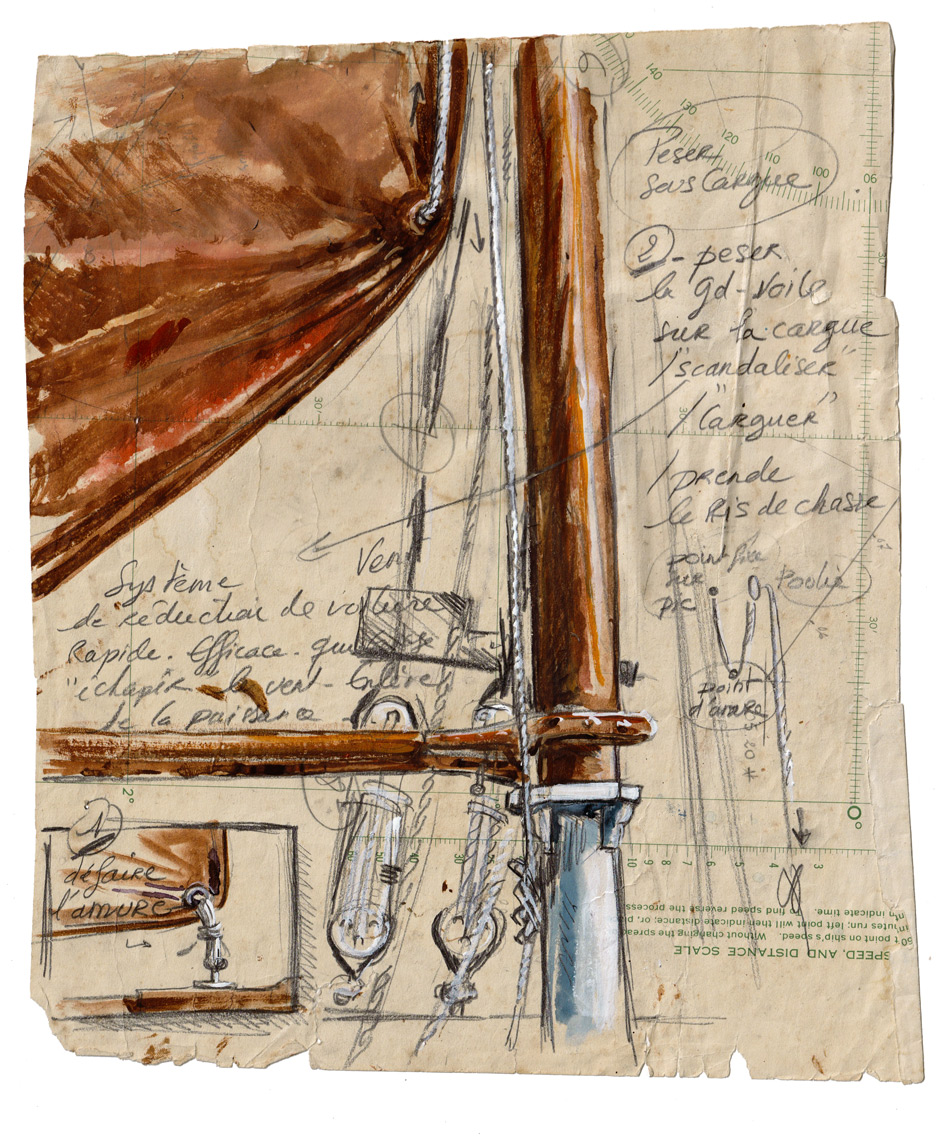 Peser
sous Cargue
2 - peser
la Gd-Voile
sur la cargue
/"scandaliser"
/"larguer"
/prende
le Ris de chasse
point fixe
sur
pic
Poulie
point
d'amure
Vent
Système
de réduction de voilure
Rapide. Efficace. qui laisse
"échapper" le vent. Enlève
de la puissance
1
défaire
l'amure
140
130
120
110
100
90
30'
30'
30'
2°
0°
60
50
40
30
10
9
8
7
6
5
4
3
SPEED AND DISTANCE SCALE
point on ship's speed. Without changing the spread
minutes run; left point will then indicate distance; or,
indicate time. To find speed reverse the process.